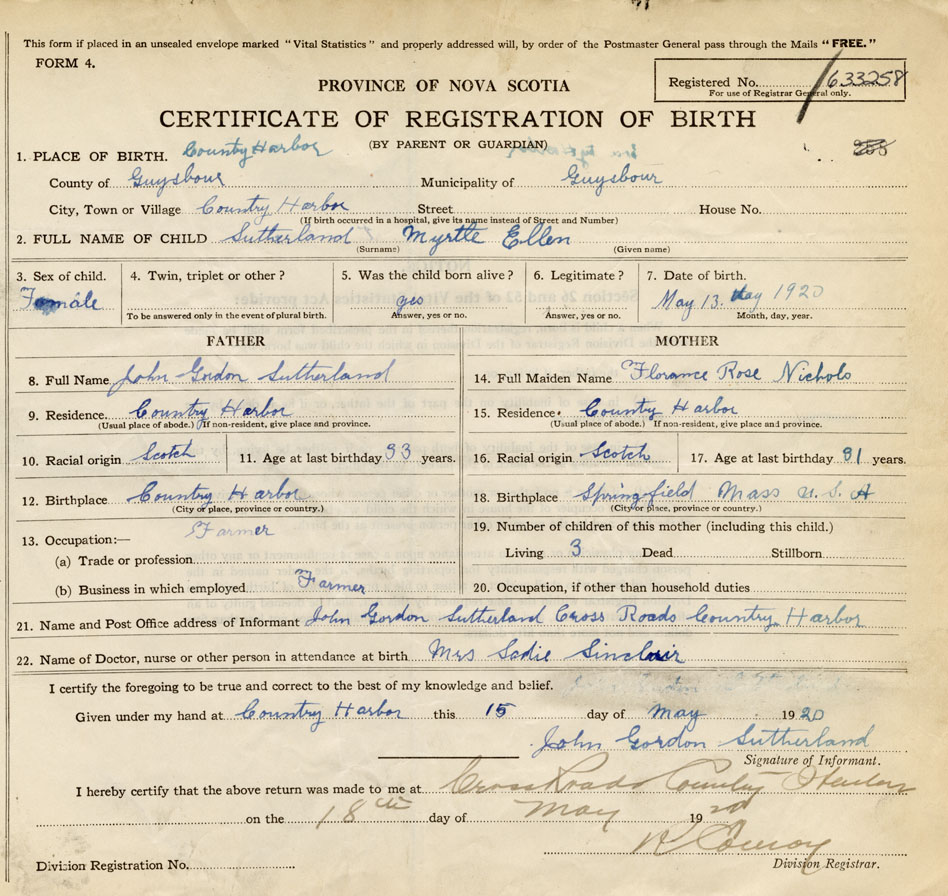 This form if placed in an unsealed envelope marked "Vital Statistics" and properly addressed will, by order of the Postmaster General pass through the Mails "FREE."
FORM 4.
Registered No. 633258
For use of Registrar General only.
PROVINCE OF NOVA SCOTIA
CERTIFICATE OF REGISTRATION OF BIRTH
(BY PARENT OR GUARDIAN)
1. PLACE OF BIRTH. Country Harbor
County of Guysbour Municipality of Guysbour
City, Town or Village Country Harbor Street House No.
(If birth occurred in a hospital, give its name instead of Street and Number)
2. FULL NAME OF CHILD Sutherland Myrtle Ellen
(Surname) (Given name)
3. Sex of child. 4. Twin, triplet or other? 5. Was the child born alive? 6. Legitimate? 7. Date of birth.
Famale yes May 13. May 1920
To be answered only in the event of plural birth. Answer, yes or no. Answer, yes or no. Month, day, year.
FATHER MOTHER
8. Full Name John Gordon Sutherland 14. Full Maiden Name Florance Rose Nichols
9. Residence. Country Harbor 15. Residence. Country Harbor
(Usual place of abode.) If non-resident, give place and province. (Usual place of abode.) If non-resident, give place and province.
10. Racial origin Scotch 11. Age at last birthday 33 years. 16. Racial origin Scotch 17. Age at last birthday 31 years.
12. Birthplace Country Harbor 18. Birthplace Springfield Mass U.S.A
(City or place, province or country.) (City or place, province or country.)
13. Occupation:— Farmer 19. Number of children of this mother (including this child.)
(a) Trade or profession Living 3 Dead Stillborn
(b) Business in which employed Farmer 20. Occupation, if other than household duties
21. Name and Post Office address of Informant John Gordon Sutherland Cross Roads Country Harbor
22. Name of Doctor, nurse or other person in attendance at birth Mrs Sadie Sinclair
I certify the foregoing to be true and correct to the best of my knowledge and belief.
Given under my hand at Country Harbor this 15 day of May 1920
John Gordon Sutherland
Signature of Informant.
I hereby certify that the above return was made to me at Cross Roads Country Harbor
on the 18th day of May 1920
Conroy
Division Registration No. Division Registrar.